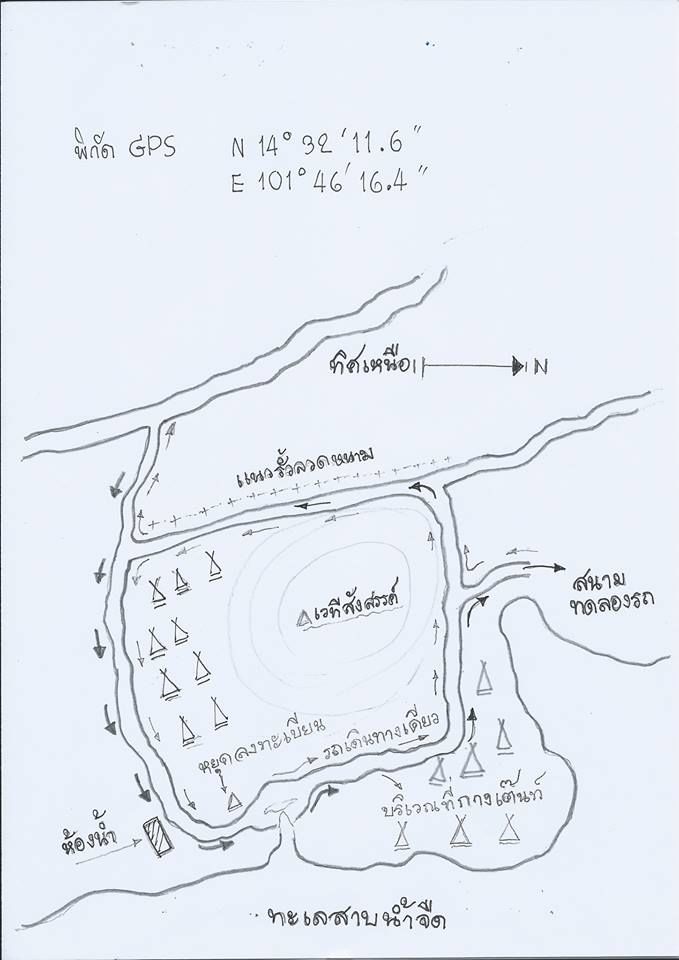 พิกัด GPS N 14° 32' 11.6"
E 101° 46' 16.4"
ทิศเหนือ N
แนวรั้วลวดหนาม
เวทีสังสรรค์
สนาม
ทดลองรถ
หยุดลงทะเบียน
รถเดินทางเดียว
บริเวณที่กางเต๊นท์
ห้องน้ำ
ทะเลสาบน้ำจืด